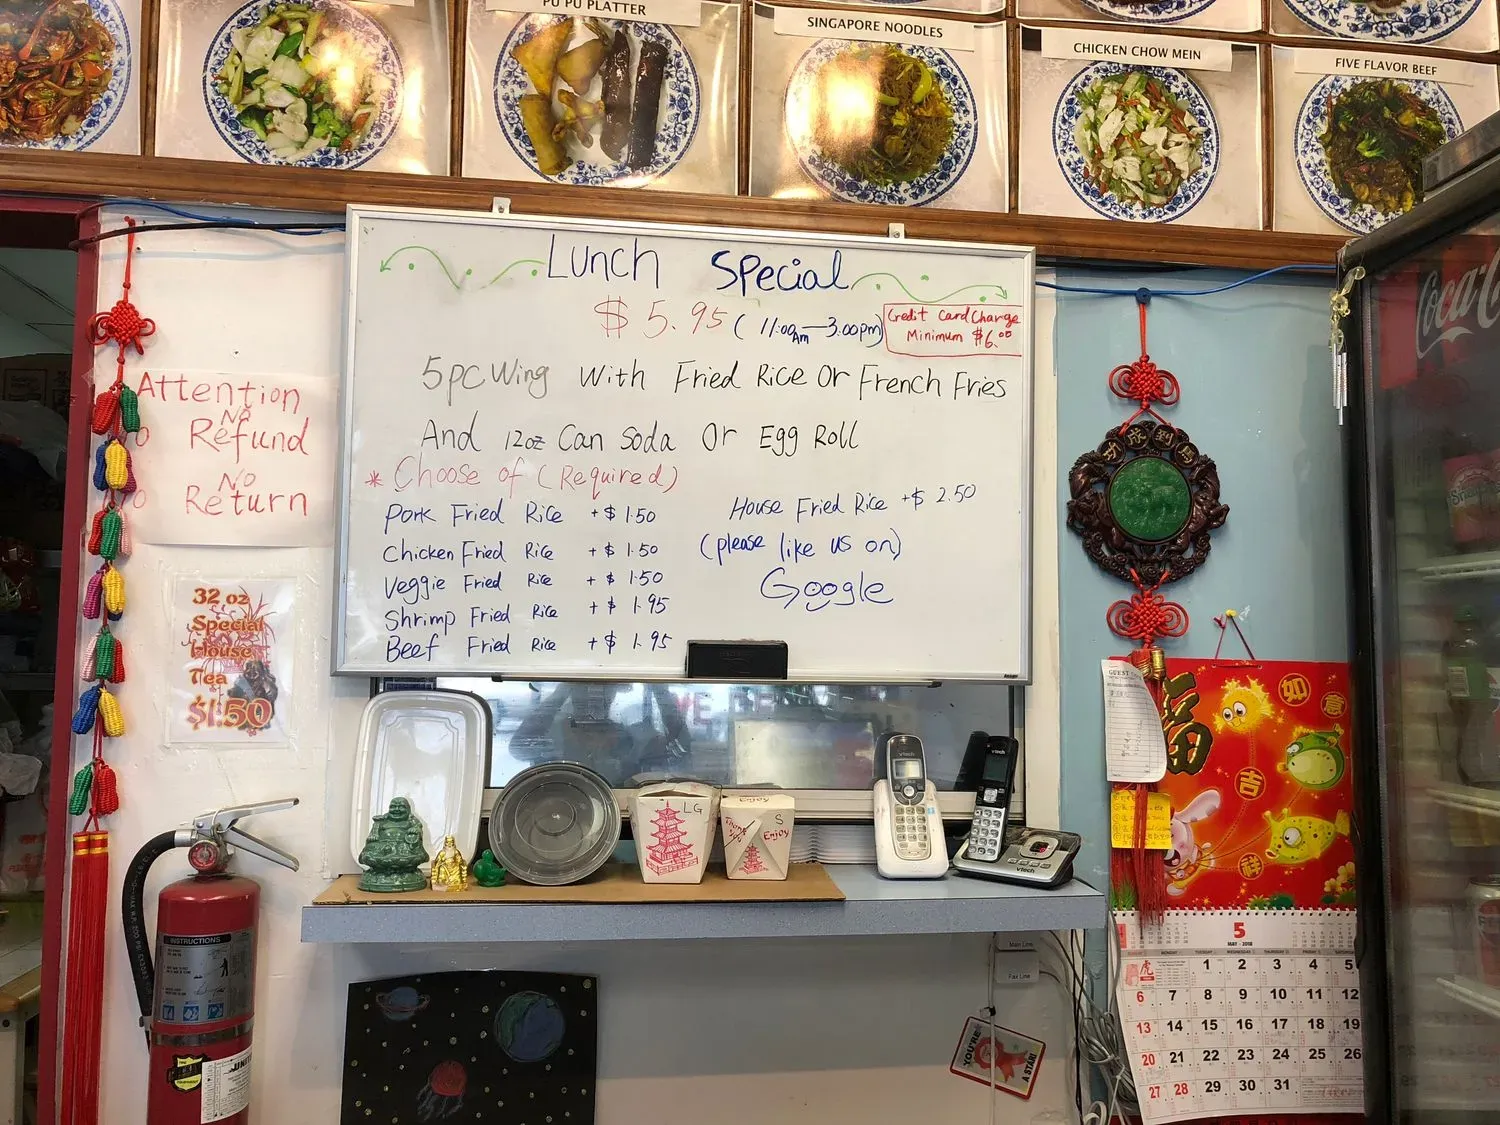 PU PU PLATTER
SINGAPORE NOODLES
CHICKEN CHOW MEIN
FIVE FLAVOR BEEF
Lunch Special
$5.95 (11:00Am—3:00pm)
Credit Card Charge
Minimum $6.00
5pc Wing With Fried Rice Or French Fries
And 12oz Can Soda Or Egg Roll
* Choose of (Required)
Pork Fried Rice +$1.50
Chicken Fried Rice +$1.50
Veggie Fried Rice +$1.50
Shrimp Fried Rice +$1.95
Beef Fried Rice +$1.95
House Fried Rice +$2.50
(please like us on)
Google
Attention
No
Refund
No
Return
32 oz
Special
House
Tea
$1.50
Coca-Co
功成到馬
LG
Enjoy
S
Enjoy
vtech
vtech
vtech
INSTRUCTIONS
Main Line
Fax Line
YOU'RE
A STAR!
GUEST
福
如意
吉
祥
5
MAY - 2018
虎
1 2 3 4 5
6 7 8 9 10 11 12
13 14 15 16 17 18 19
20 21 22 23 24 25 26
27 28 29 30 31